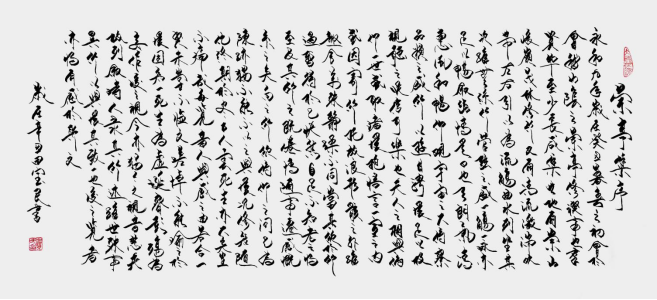 蘭亭集序
永和九年歲在癸丑暮春之初會於
會稽山陰之蘭亭修禊事也群
賢畢至少長咸集此地有崇山
峻嶺茂林修竹又有清流激湍映
帶左右引以為流觴曲水列坐其
次雖無絲竹管絃之盛一觴一詠亦
足以暢敘幽情是日也天朗氣清
惠風和暢仰觀宇宙之大俯察
品類之盛所以遊目騁懷足以極
視聽之娛信可樂也夫人之相與俯
仰一世或取諸懷抱悟言一室之內
或因寄所託放浪形骸之外雖
趣舍萬殊靜躁不同當其欣於所
遇暫得於己快然自足不知老之將
至及其所之既倦情隨事遷感慨
係之矣向之所欣俯仰之間已為
陳跡猶不能不以之興懷況修短隨
化終期於盡古人云死生亦大矣豈
不痛哉每覽昔人興感之由若合一
契未嘗不臨文嗟悼不能喻之於
懷固知一死生為虛誕齊彭殤為
妄作後之視今亦猶今之視昔悲夫
故列敘時人錄其所述雖世殊事
異所以興懷其致一也後之覽者
亦將有感於斯文
歲在辛丑田